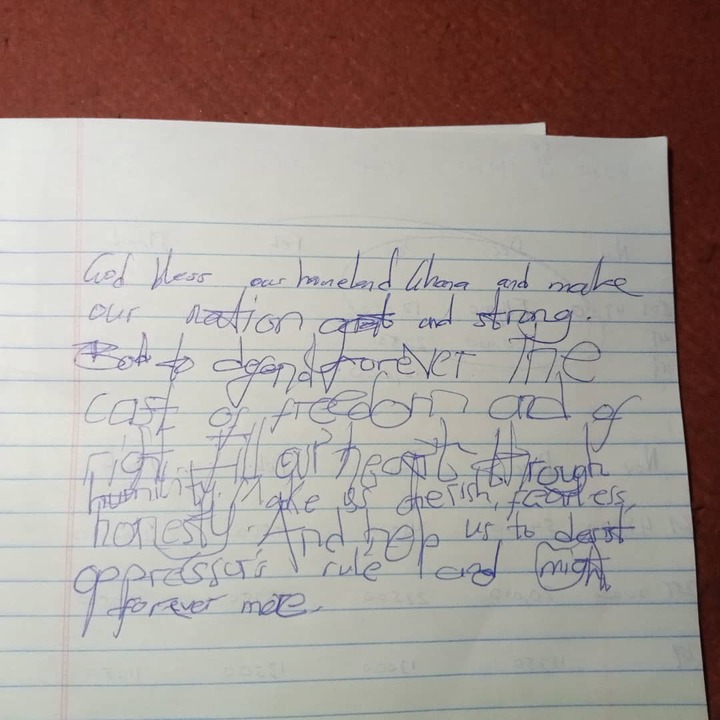 God bless our homeland Ghana and make
our nation and strong.
Bold to defend forever The
cast of freedom and of
right fill our heart through
humility. Make us cherish, fearless
honesty. And help us to desist
oppressor's rule and might
forever more.